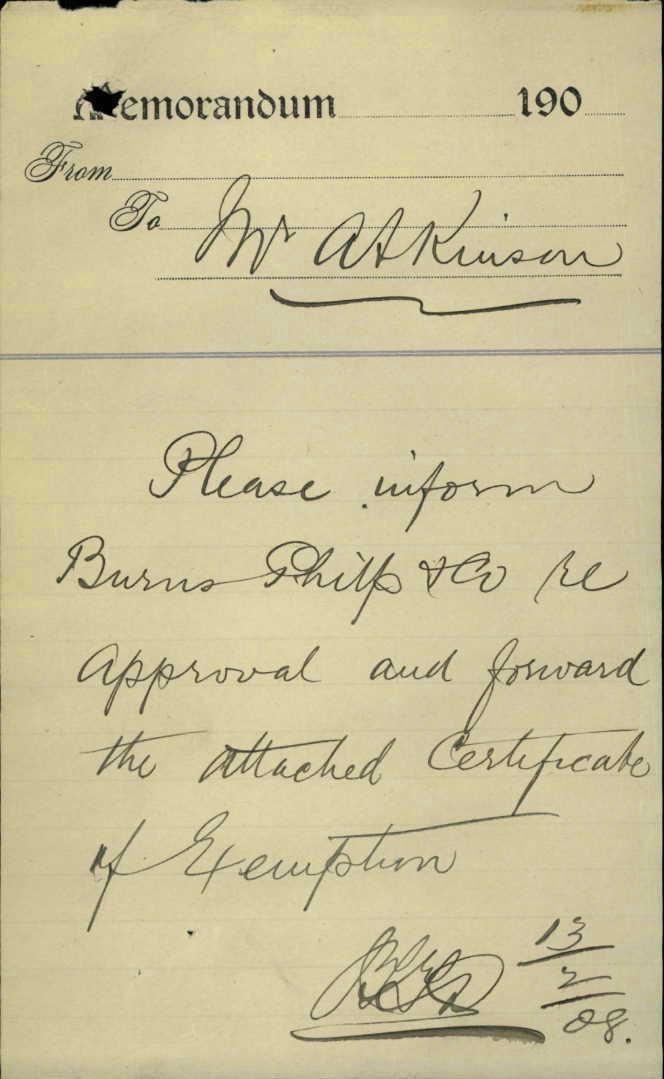 Memorandum 190
From
To Mr Atkinson
Please inform
Burns Philp & Co re
approval and forward
the attached Certificate
of Exemption
13
2
08.